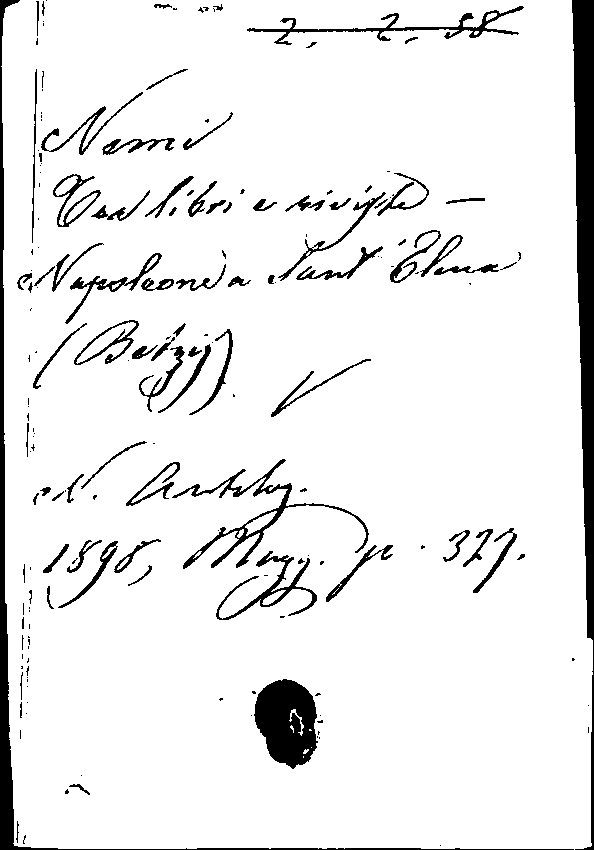 2. 2. 58
Nemi
Tra libri e riviste —
Napoleone a Sant' Elena
(Betzy)
N. Antolog.
1898, Magg. p. 327.